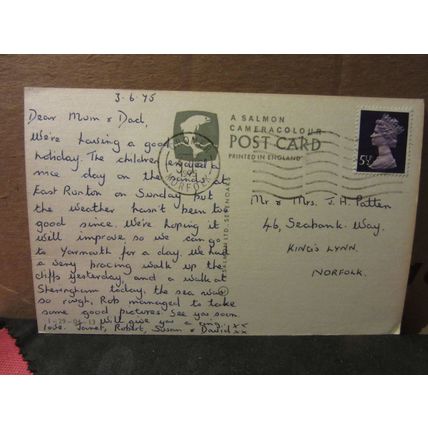 3-6-75
Dear Mum & Dad,
We're having a good
holiday. The children enjoyed a
nice day on the sands at
East Runton on Sunday but
the weather hasn't been too
good since. We're hoping it
will improve so we can go
to Yarmouth for a day. We had
a very bracing walk up the
cliffs yesterday and a walk at
Sheringham today, the sea was
so rough, Rob managed to take
some good pictures. See you soon
Will give you a ring. xx
love. Janet, Robert, Susan & David xx
1-29-04-13
A SALMON
CAMERACOLOUR
POST CARD
PRINTED IN ENGLAND
NORFOLK
LTD., SEVENOAKS
5½P
Mr & Mrs. J. H. Patten
46, Seabank Way.
KING'S LYNN.
NORFOLK.